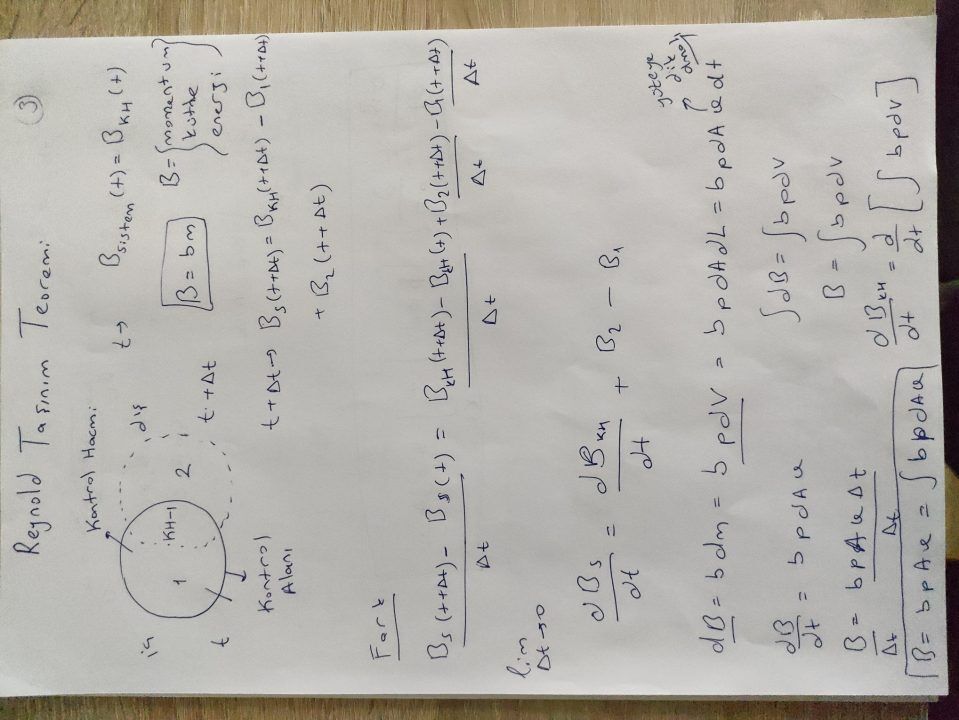 Reynold Taşınım Teoremi
(3)
Kontrol Hacmi
in
dış
1
KH-1
2
t
t+Δt
Kontrol
Alanı
t→ Bsistem(t) = BKH(t)
B = bm
B = {momentum
kütle
enerji}
t+Δt→ Bs(t+Δt) = BKH(t+Δt) - B1(t+Δt)
+ B2(t+Δt)
Fark
Bs(t+Δt) - Bs(t) / Δt = BKH(t+Δt) - BKH(t) / Δt + B2(t+Δt) / Δt - B1(t+Δt) / Δt
lim Δt→0
dBs/dt = dBKH/dt + B2 - B1
dB = b dm = b ρdV = b ρdAdL = b ρdAu dt
yüzeye
dik
dB/dt = b ρdAu
∫dB = ∫bρdV
B/Δt = bρAuΔt/Δt
B = ∫bρdV
B = bρAu = ∫bρdAu
dBKH/dt = d/dt [∫bρdV]